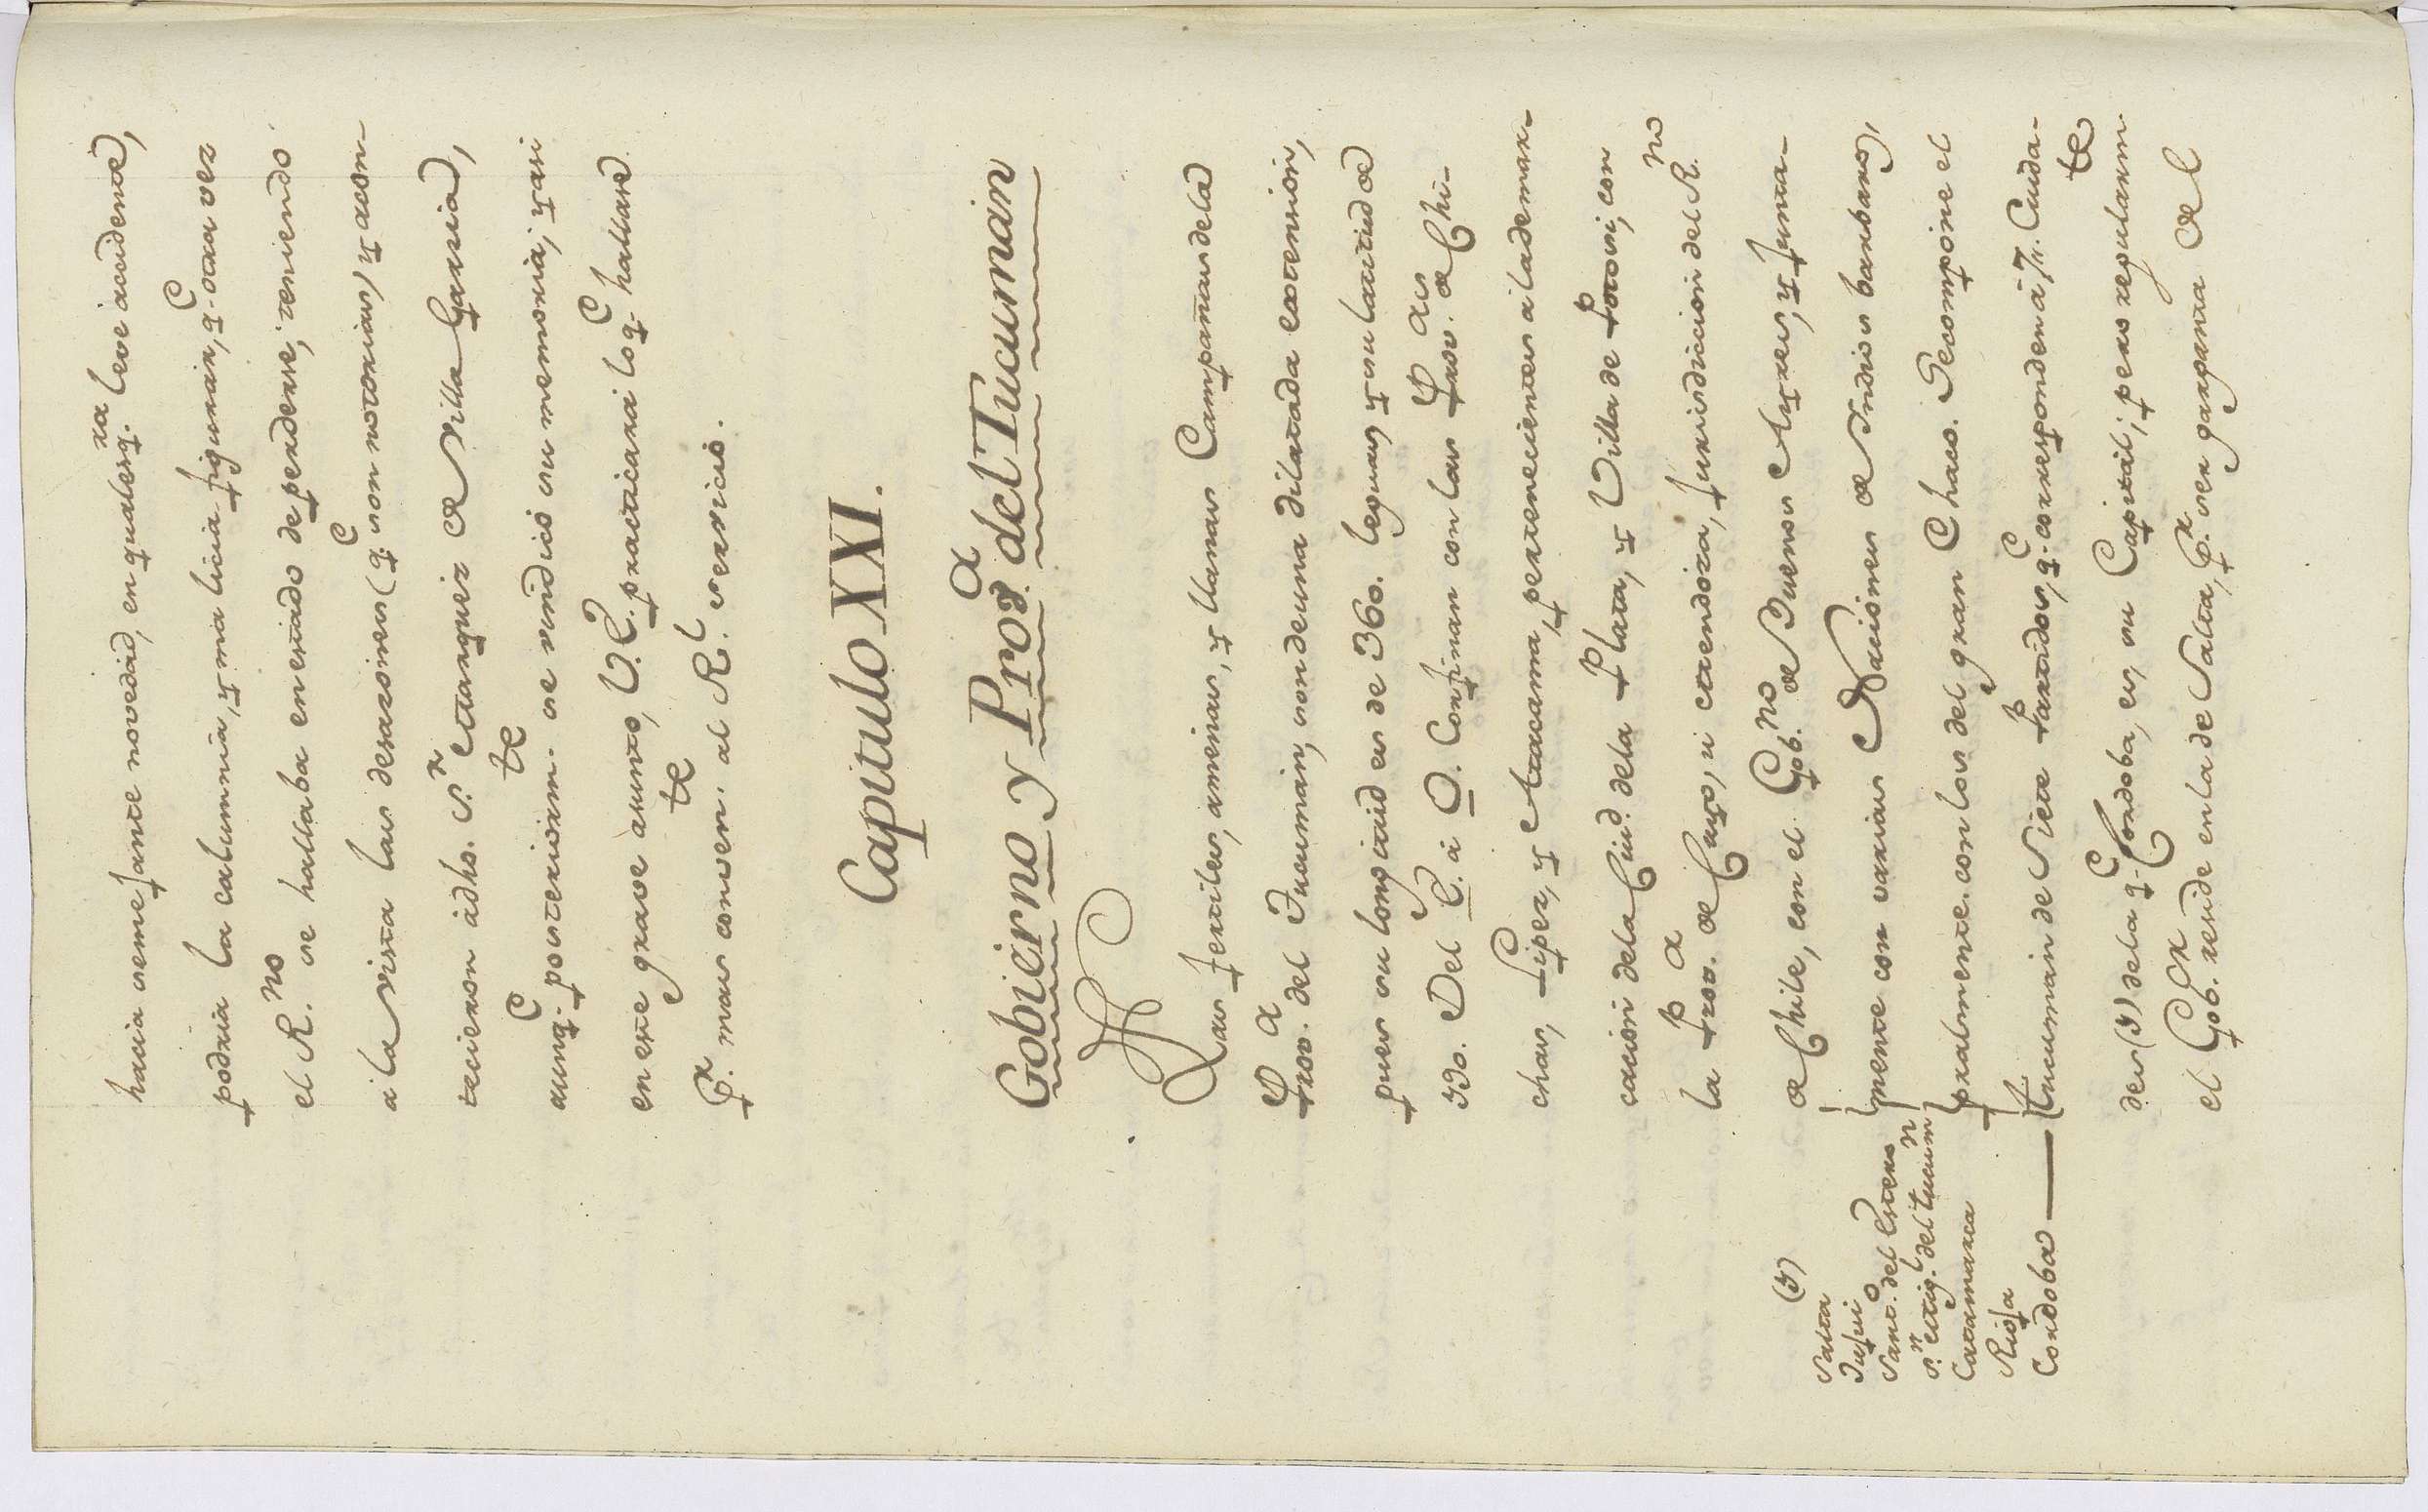 hacia semejante novedad, en qualesq.ra leve accidente,
podria la calumnia, y malicia figurar, q.e otra vez
el R.no se hallaba en estado de perderse; teniendo
à la vista las desazones (q.e son notorias) y acon-
tecieron à dho. S.n Atanquer de Villa Garzia,
aunq.e posteriorm.te se vindicó su memoria; y asi
en este grave asunto, V.E. practicará lo q.e hallare
p.r mas conven.te al R.l servicio.
Capitulo XXI.
Gobierno y Prov.a del Tucumán
Las fertiles, amenas, y llanas Campañas de la
Prov.a del Tucumán, son de una dilatada extension,
pues su longitud es de 360. leguas y su latitud de
190. Del E. à O. Confinan con las Prov.as de Chi-
chas, Lipez, y Atacama, pertenecientes a la demar-
cacion de la Ciud. de la Plata, y Villa de Potosi; con
la Prov.a de Cuyo, ù etrendoza, Jurisdiccion del R.no
de Chile, con el Gob.no de Buenos Ayres, y funta-
mente con varias Naciones de Indios barbaros,
pralmente con los del gran Chaco. Secompone el
Tucumán de Siete Partidos, q.e corresponden à 7,, Ciuda-
des (9) de la q.e Cordoba, es su Capital; pero regularm.te
el Gob.or reside en la de Salta, p.r ser garganta del
(9)
Salta
Jujui
Sant.o del Estero
S.n Mig.l del Tucum.n
Catamarca
Rioja
Cordoba